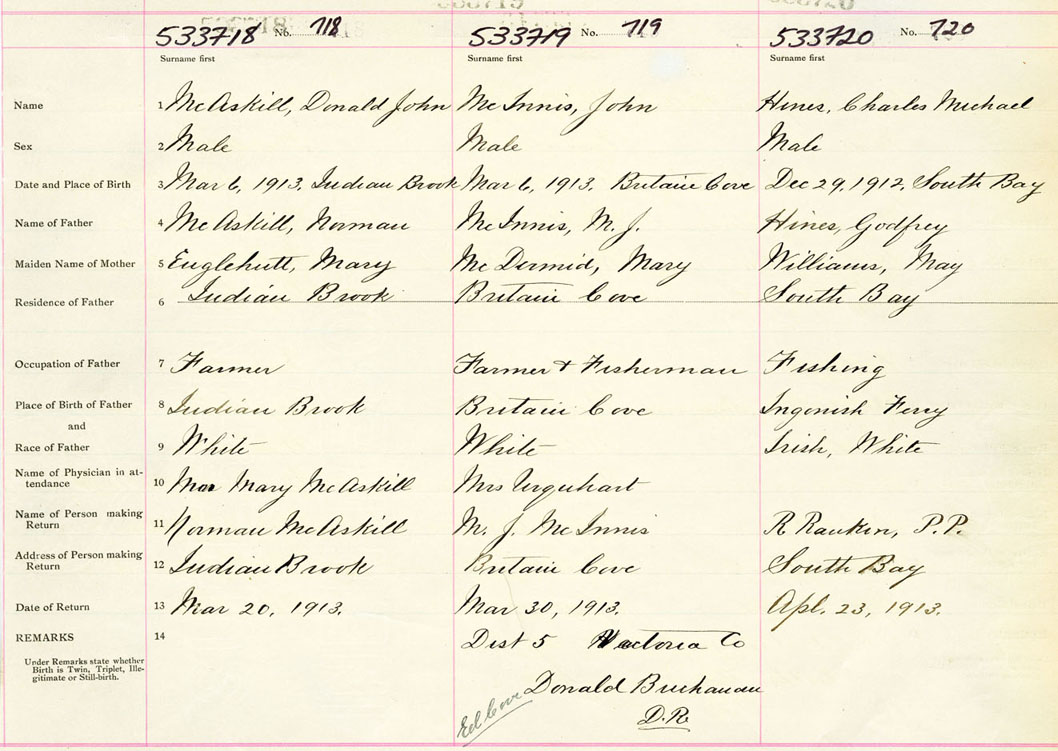 533718 No. 718 533719 No. 719 533720 No. 720
Surname first Surname first Surname first
Name 1 McAskill, Donald John McInnis, John Hines, Charles Michael
Sex 2 Male Male Male
Date and Place of Birth 3 Mar 6, 1913, Indian Brook Mar 6, 1913. Britain Cove Dec 29, 1912, South Bay
Name of Father 4 McAskill, Norman McInnis, M. J. Hines, Godfrey
Maiden Name of Mother 5 Englehutt, Mary McDermid, Mary Williams, May
Residence of Father 6 Indian Brook Britain Cove South Bay
Occupation of Father 7 Farmer Farmer + Fisherman Fishing
Place of Birth of Father 8 Indian Brook Britain Cove Ingonish Ferry
and
Race of Father 9 White White Irish, White
Name of Physician in at-
tendance 10 Mary McAskill Mrs Urquhart
Name of Person making
Return 11 Norman McAskill M. J. McInnis R Rankin, P.P.
Address of Person making
Return 12 Indian Brook Britain Cove South Bay
Date of Return 13 Mar 20, 1913. Mar 30, 1913. Apl. 23, 1913.
REMARKS 14 Dist 5 Victoria Co
Under Remarks state whether
Birth is Twin, Triplet, Ille-
gitimate or Still-birth.
Donald Buchanan
D.R.